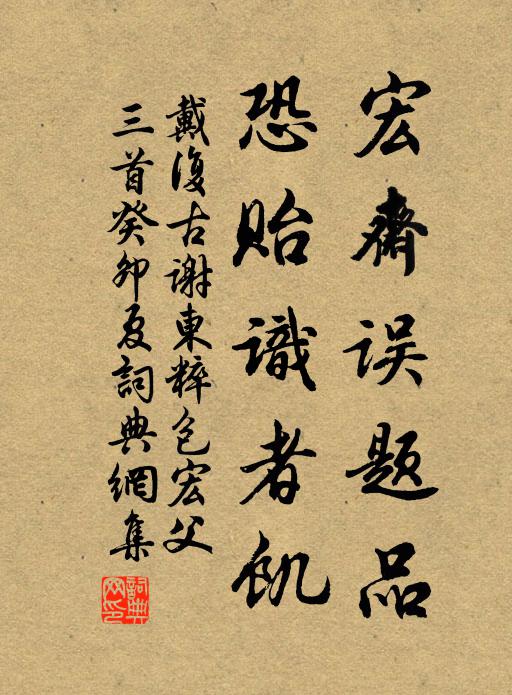 宏齋误题品
恐貽識者飢
戴復古謝東粹包宏父
三首癸卯夏詞典網集
詞典网印